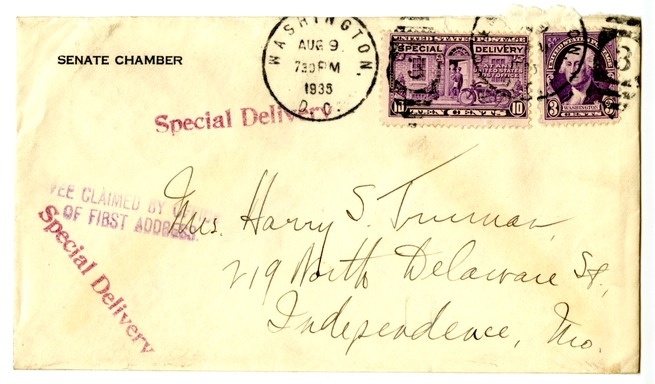 SENATE CHAMBER
WASHINGTON,
AUG 9
730 PM
1935
D. C.
UNITED STATES POSTAGE
SPECIAL DELIVERY
10 TEN CENTS 10
3 WASHINGTON
CENTS
Special Delivery
FEE CLAIMED BY
OF FIRST ADDRESS.
Special Delivery
Mrs. Harry S. Truman,
219 North Delaware St.,
Independence, Mo.